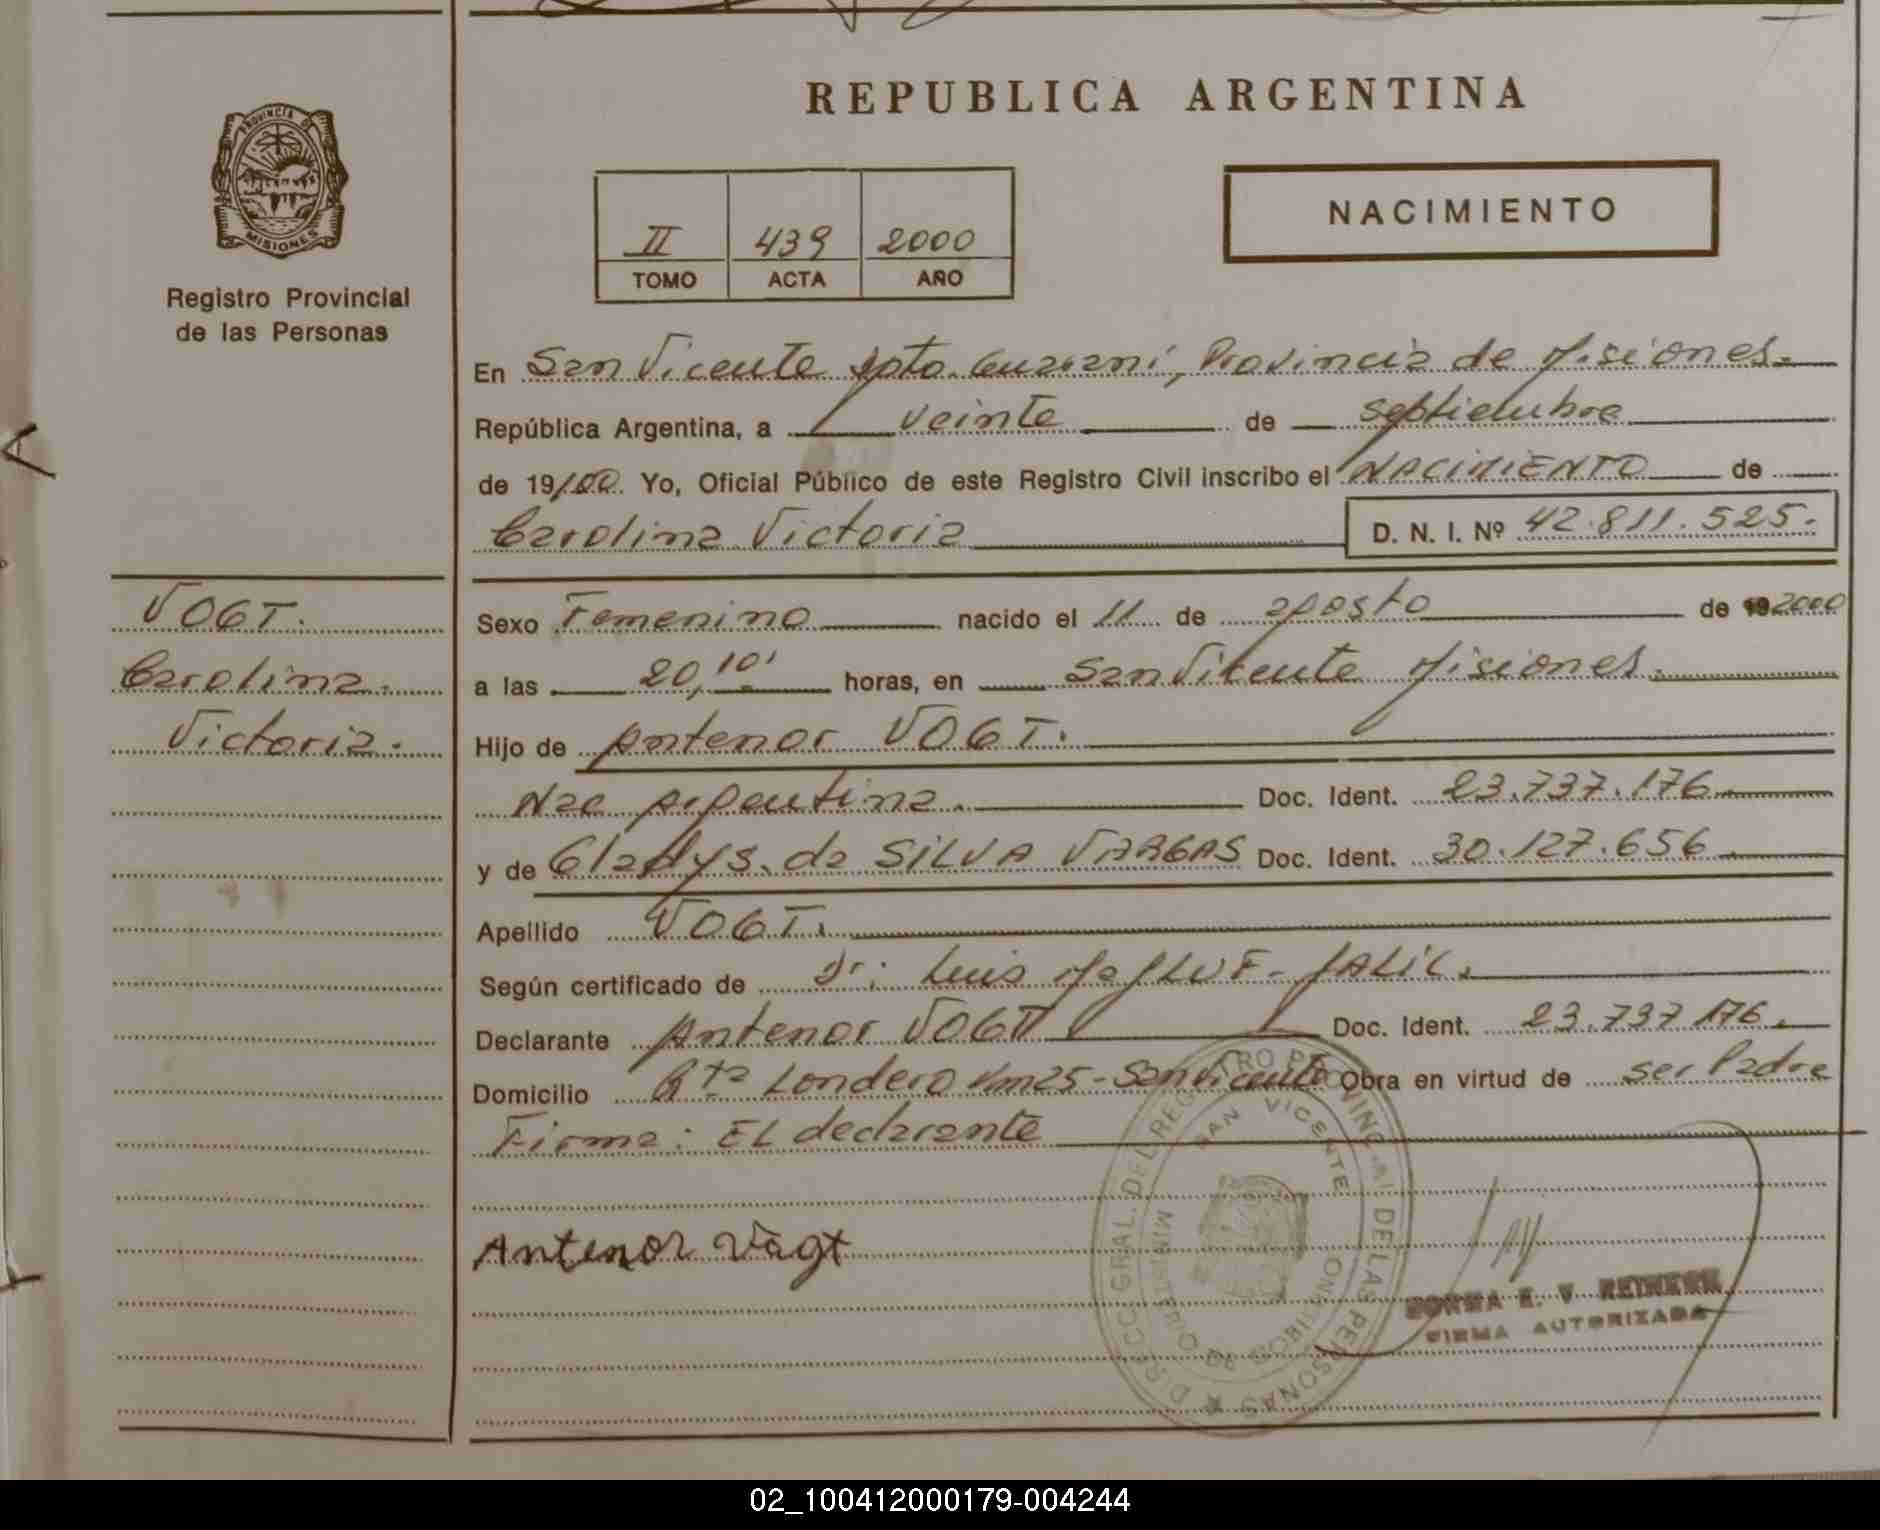 REPUBLICA ARGENTINA
PROVINCIA DE
MISIONES
Registro Provincial
de las Personas
II 439 2000
TOMO ACTA AÑO
NACIMIENTO
En San Vicente Dpto. Guaraní, Provincia de Misiones.
República Argentina, a veinte de septiembre
de 19/00. Yo, Oficial Público de este Registro Civil inscribo el NACIMIENTO de
Carolina Victoria D. N. I. Nº 42.811.525.
VOGT.
Carolina.
Victoria.
Sexo Femenino nacido el 11 de agosto de 19 2000
a las 20,10' horas, en San Vicente Misiones.
Hijo de Antenor VOGT.
Nac Argentina. Doc. Ident. 23.737.176
y de Gladys. da SILVA VARGAS Doc. Ident. 30.127.656
Apellido VOGT.
Según certificado de Dr: Luis JALIL.
Declarante Antenor VOGT Doc. Ident. 23.737 176.
Domicilio Rta Londero km 25 - San Vicente Obra en virtud de ser Padre
Firma: EL declarante
Antenor Vogt
DIRECC. GRAL. DEL REGISTRO PROVINCIAL DE LAS PERSONAS
SAN VICENTE
MINISTERIO DE GOBIERNO
NORMA E. V.
FIRMA AUTORIZADA
02_100412000179-004244